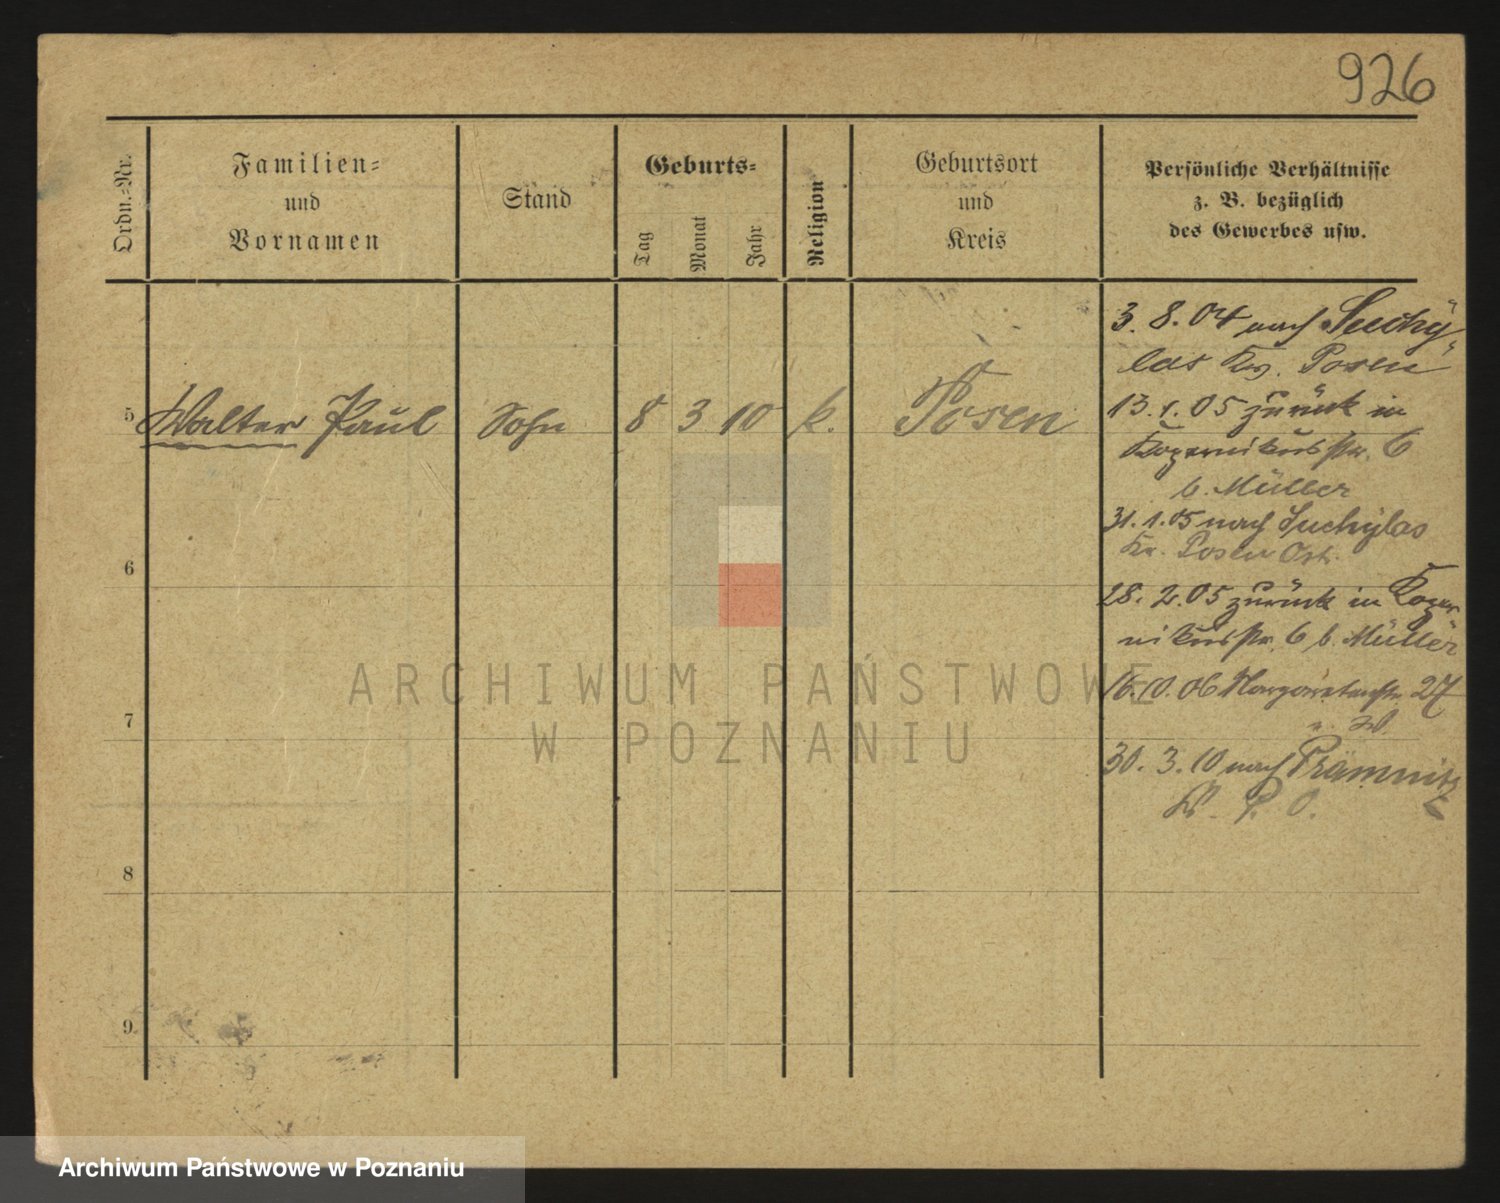 926
Ordn.-Nr.
Familien-
und
Vornamen
Stand
Geburts-
Tag
Monat
Jahr
Religion
Geburtsort
und
Kreis
Persönliche Verhältnisse
z. B. bezüglich
des Gewerbes usw.
5 Walter Paul Sohn 8 3 10 k. Posen
6
7
8
9
3. 8. 04 nach Suchy-
las Krs. Posen
13. 1. 05 zurück in
Kopernikusstr. 6
b. Müller
31. 1. 05 nach Suchylas
Kr. Posen Ost.
28. 2. 05 zurück in Koper
nikusstr. 6 b. Müller
16. 10. 06 Margaretenstr. 27
30. 3. 10 nach Prämnitz
P. O.
ARCHIWUM PAŃSTWOWE
W POZNANIU
Archiwum Państwowe w Poznaniu